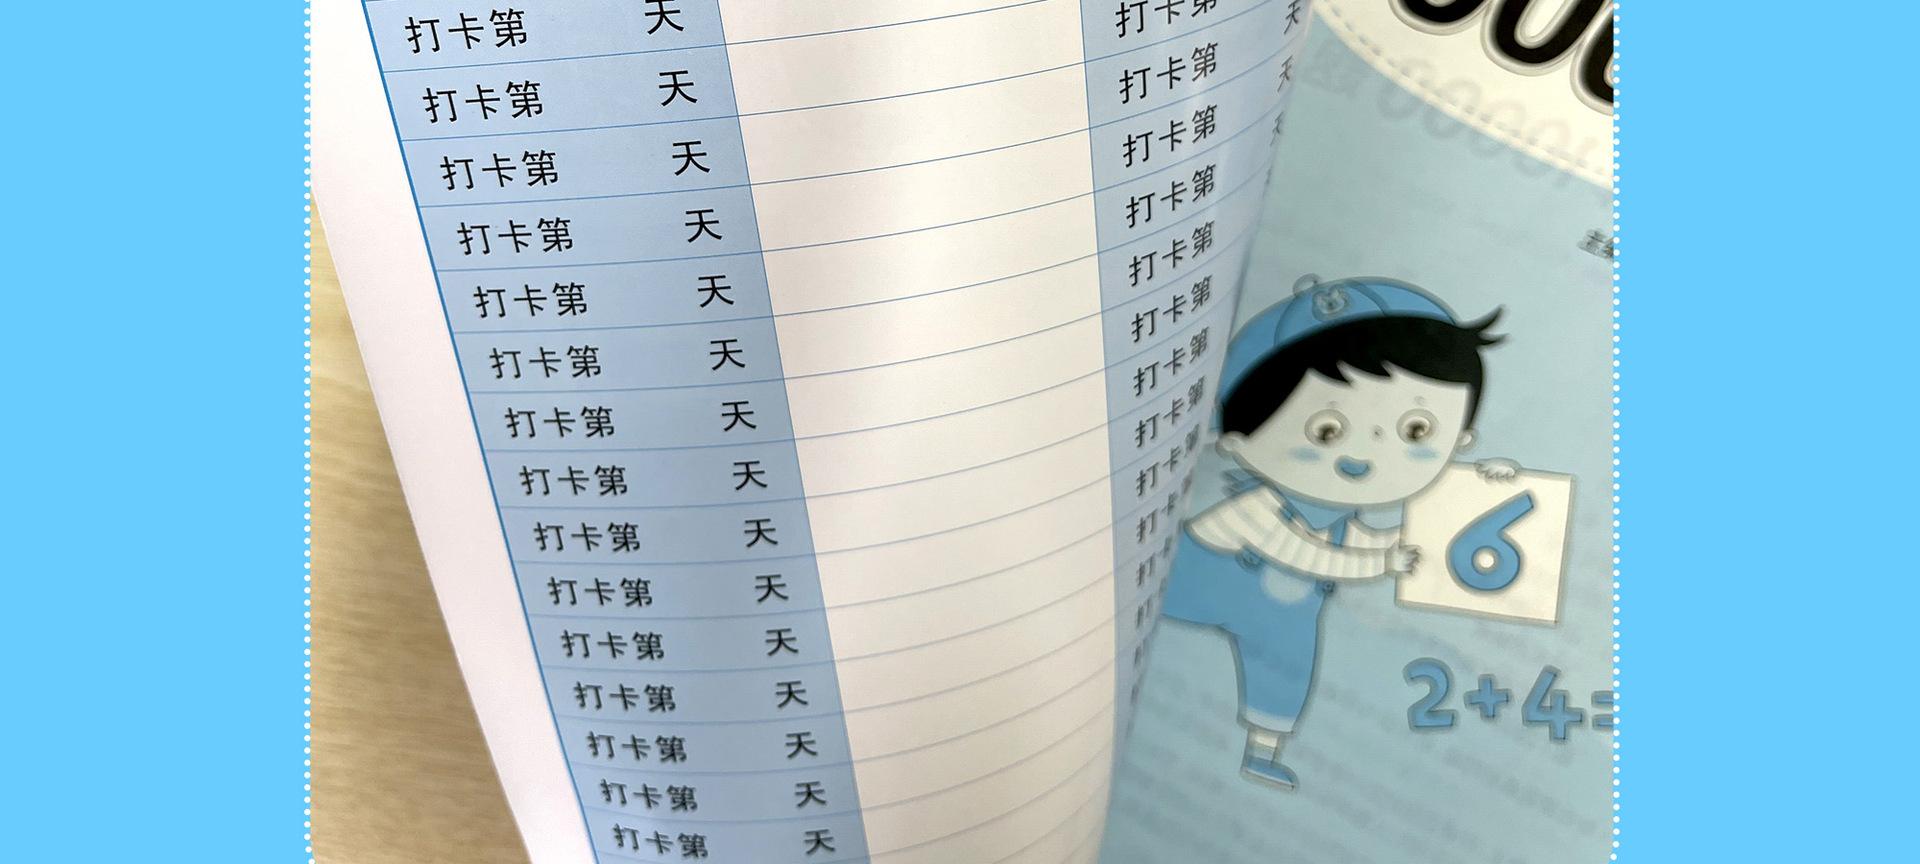 打卡第 天
打卡第 天
打卡第 天
打卡第 天
打卡第 天
打卡第 天
打卡第 天
打卡第 天
打卡第 天
打卡第 天
打卡第 天
打卡第 天
打卡第 天
打卡第 天
打卡第 天
打卡第 天
打卡第 天
打卡第
打卡第
打卡第
打卡第
打卡第
打卡第
打卡
打卡
6
2+4=